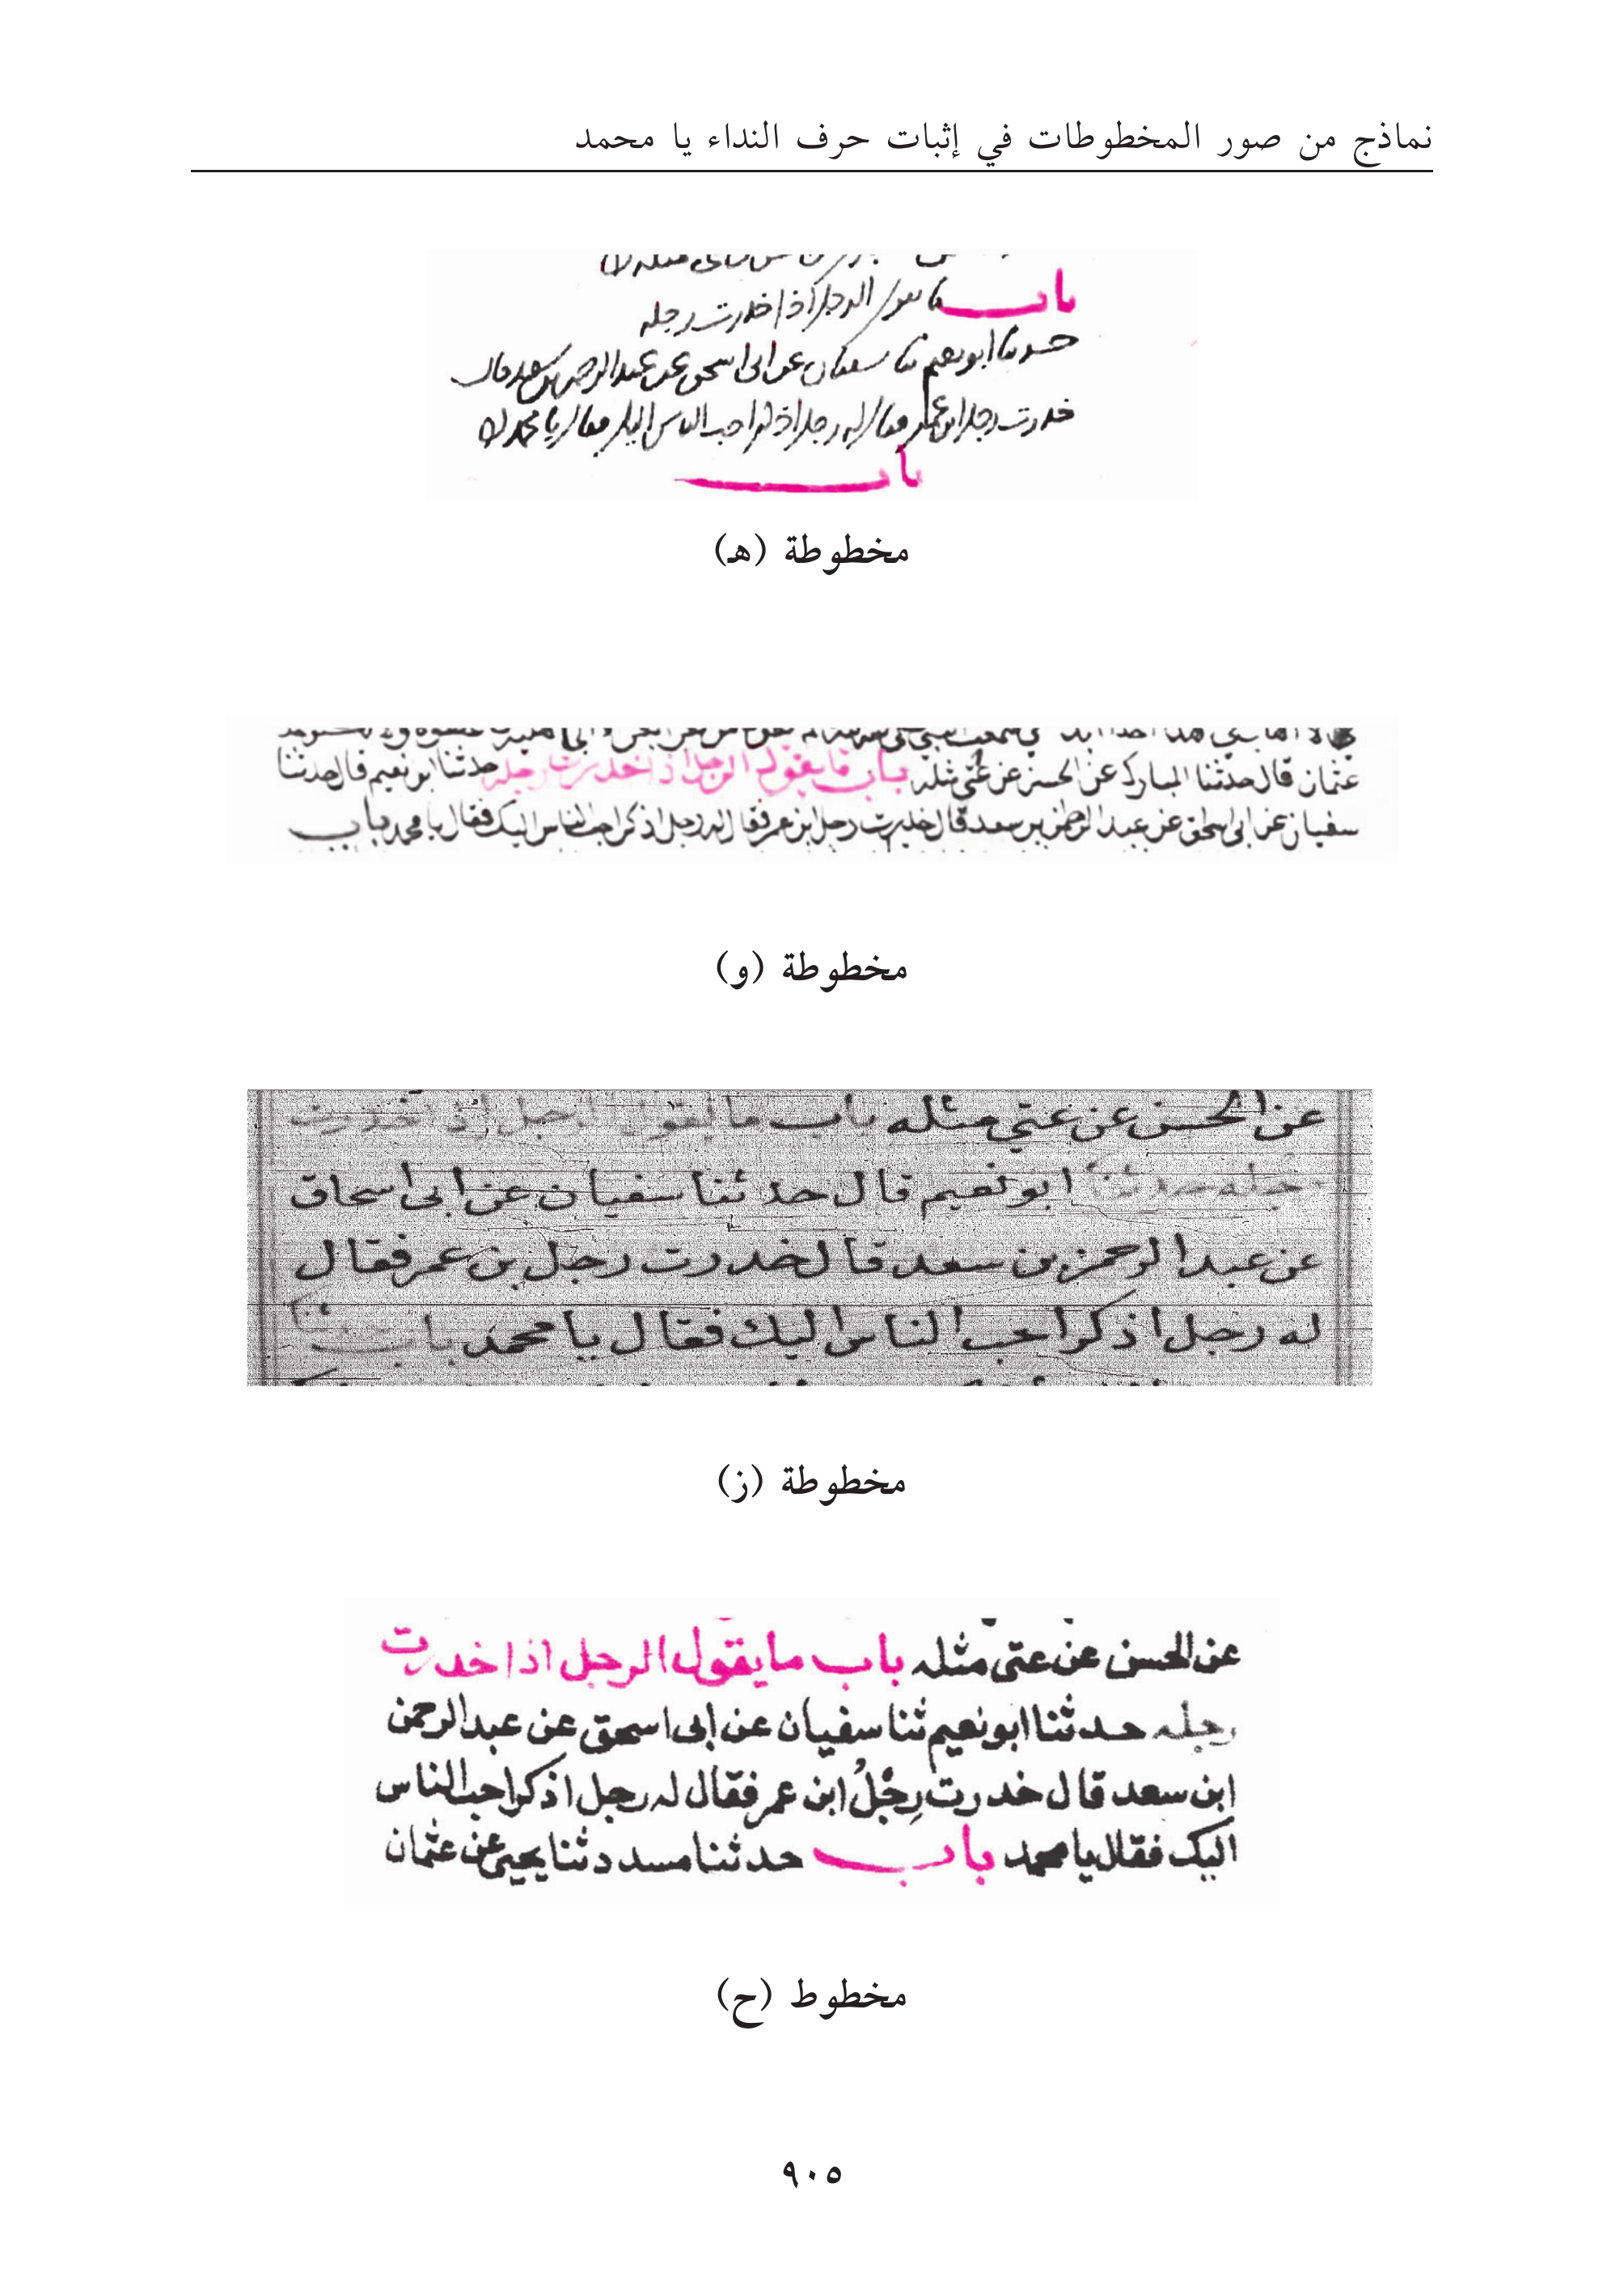 نماذج من صور المخطوطات في إثبات حرف النداء يا محمد
باب ما يقول الرجل اذا خدرت رجله
حدثنا ابو نعيم ثنا سفيان عن ابى اسحق عن عبد الرحمن بن سعد قال
خدرت رجل ابن عمر فقال له رجل اذكر احب الناس اليك فقال يا محمد
باب
مخطوطة (هـ)
عثمان قال حدثنا المبارك عن الحسن عن عتي مثله باب ما يقول الرجل اذا خدرت رجله حدثنا ابو نعيم قال حدثنا
سفيان عن ابى اسحق عن عبد الرحمن بن سعد قال خدرت رجل ابن عمر فقال له رجل اذكر احب الناس اليك فقال يا محمد باب
مخطوطة (و)
عن الحسن عن عتي مثله باب ما يقول الرجل اذا خدرت
رجله حدثنا ابو نعيم قال حدثنا سفيان عن ابى اسحاق
عن عبد الرحمن بن سعد قال خدرت رجل بن عمر فقال
له رجل اذكر احب الناس اليك فقال يا محمد باب
مخطوطة (ز)
عن الحسن عن عتى مثله باب ما يقول الرجل اذا خدرت
رجله حدثنا ابو نعيم ثنا سفيان عن ابى اسحق عن عبد الرحمن
ابن سعد قال خدرت رِجْلُ ابن عمر فقال له رجل اذكر احب الناس
اليك فقال يا محمد باب حدثنا مسدد ثنا يحيى عن عثمان
مخطوط (ح)
٩٠٥